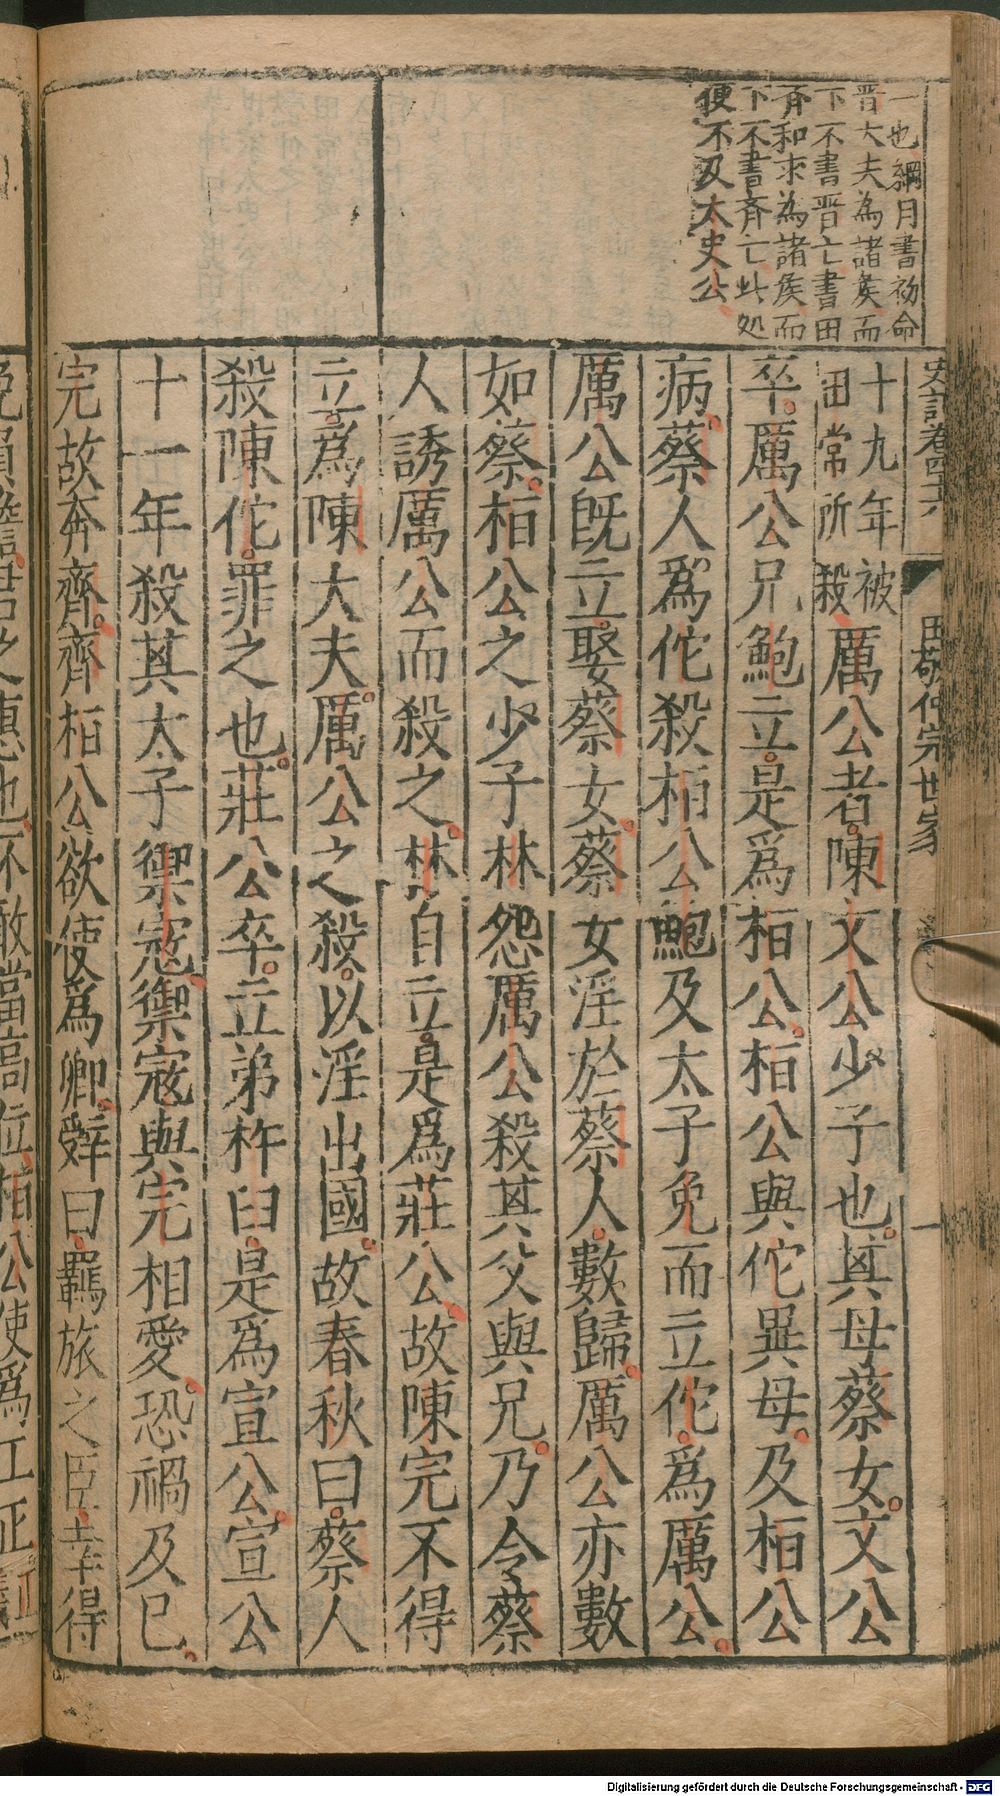 一也綱目書初命
晉大夫為諸侯而
下不書晉亡書田
齊和求為諸侯而
下不書齊亡此処
便不及太史公
史記卷四十六
田敬仲完世家
一
十九年被
田常所殺
厲公者陳文公少子也其母蔡女文公
卒厲公兄鮑立是爲桓公桓公與佗異母及桓公
病蔡人爲佗殺桓公鮑及太子免而立佗爲厲公
厲公既立娶蔡女蔡女淫於蔡人數歸厲公亦數
如蔡桓公之少子林怨厲公殺其父與兄乃令蔡
人誘厲公而殺之林自立是爲莊公故陳完不得
立爲陳大夫厲公之殺以淫出國故春秋曰蔡人
殺陳佗罪之也莊公卒立弟杵臼是爲宣公宣公
十一年殺其太子禦寇禦寇與完相愛恐禍及已
完故奔齊齊桓公欲使爲卿辭曰羈旅之臣幸得
免負擔君之惠也不敢當高位桓公使爲工正
Digitalisierung gefördert durch die Deutsche Forschungsgemeinschaft - DFG